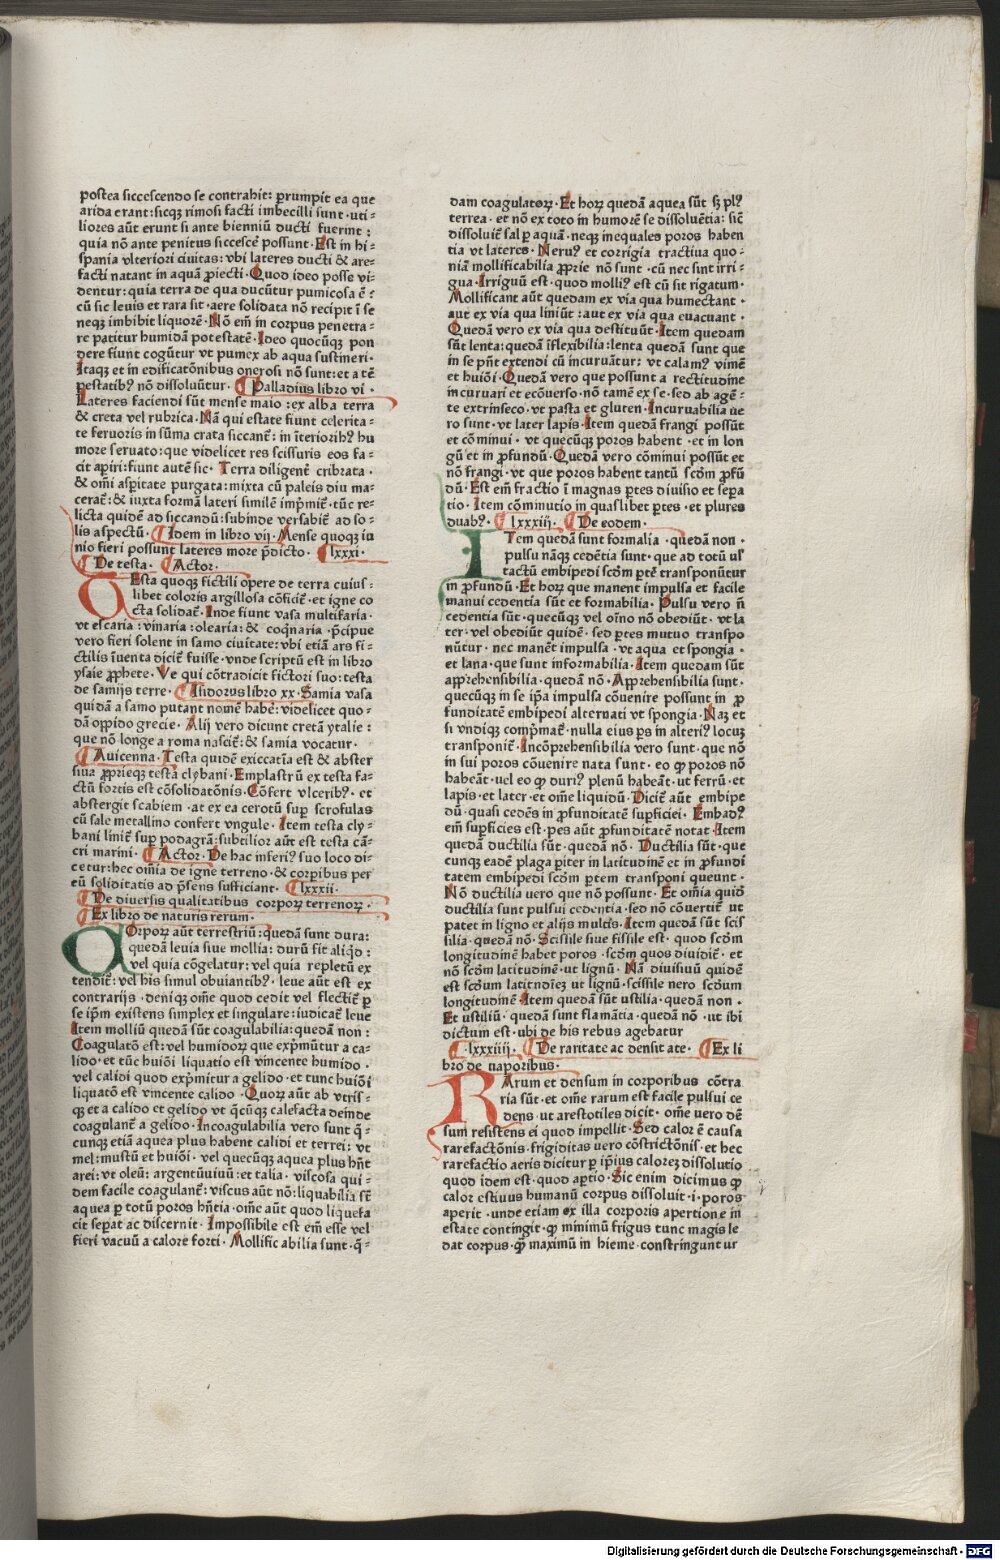 postea siccescendo se contrahit: ꝑrumpit ea que
arida erant:sicqꝫ rimosi facti imbecilli sunt·uti⸗
liores aūt erunt si ante bienniū ducti fuerint:
quia nō ante penitus siccescē possunt·Est in hi⸗
spania vlteriori ciuitas:vbi lateres ducti & are⸗
facti natant in aquā ꝓiecti·Quod ideo posse vi⸗
dentur:quia terra de qua ducūtur pumicosa ē:
cū sic leuis et rara sit·aere solidata nō recipit ī se
neqꝫ imbibit liquorē·Nō em̄ in corpus penetra⸗
re patitur humidā potestatē·Ideo quocūqꝫ pon
dere fiunt cogūtur vt pumex ab aqua sustineri·
Itaqꝫ et in edificatōnibus onerosi nō sunt:et a tē
pestatibꝰ nō dissoluūtur· ¶Palladius libro vi·
Lateres faciendi sūt mense maio:ex alba terra
& creta vel rubrica·Nā qui estate fiunt celerita⸗
te feruoris in sūma crata siccant̄:in īteriorihꝰ hu
more seruato:que videlicet res scissuris eos fa⸗
cit aꝑiri:fiunt autē sic·Terra diligent̄ cribrata·
& omī asꝑitate purgata:mixta cū paleis diu ma⸗
cerat̄:& iuxta formā lateri similē impͥmit̄·tūc re⸗
licta quidē ad siccandū:subinde versabit̄ ad so⸗
lis aspectū·¶Idem in libro vij·Mense quoqꝫ iu
nio fieri possunt lateres more p̄dicto· ¶lxxxi·
¶De testa· ¶Actor·
TEsta quoqꝫ fictili opere de terra cuius⸗
libet coloris argillosa cōficit̄·et igne co
cta solidat̄·Inde fiunt vasa multifaria·
vt escaria:vinaria:olearia:& coq̄naria·p̄cipue
vero fieri solent in samo ciuitate:vbi etiā ars fi⸗
ctilis īuenta dicit̄ fuisse·vnde scriptū est in libro
ysaie ꝓphete·Ve qui cōtradicit fictori suo:testa
de samijs terre·¶Isidorus libro xx·Samia vasa
quidā a samo putant nomē habē:videlicet quo⸗
dā oppido grecie·Alij vero dicunt cretā ytalie:
que nō longe a roma nascit̄:& samia vocatur·
¶Auicenna·Testa quidē exiccatīa est & abster
siua ꝓprieqꝫ testa clybani·Emplastrū ex testa fa⸗
ctū fortis est cōsolidatōnis·Cōfert vlceribꝰ·et
abstergit scabiem·at ex ea cerotū suꝑ scrofulas
cū sale metallino confert vngule·Item testa cly⸗
bani linit̄ suꝑ podagrā:subtilior aūt est testa cā⸗
cri marini·¶Actor·De hac inferiꝰ suo loco di⸗
cetur:hec om̄ia de igne terreno·& corpibus per
eū soliditatis ad p̄sens sufficiant· ¶lxxxii·
¶De diuersis qualitatibus corpoꝝ terrenoꝝ·
¶Ex libro de naturis rerum·
COrpoꝝ aūt terrestriū:quedā sunt dura:
quedā leuia siue mollia:durū sit aliqͥd:
vel quia cōgelatur:vel quia repletū ex
tendit̄:vel his simul obuiantibꝰ·leue aūt est ex
contrarijs·deniqꝫ om̄e quod cedit vel flectit̄ ꝑ
se ip̄m existens simplex et singulare:iudicat̄ leue
Item molliū quedā sūt coagulabilia:quedā non:
Coagulatō est:vel humidoꝝ que exp̄mūtur a ca⸗
lido·et tūc huiōi liquatio est vincente humido·
vel calidi quod exp̄mitur a gelido·et tunc huiōi
liquatō est vincente calido·Quoꝝ aūt ab vtris⸗
qꝫ et a calido et gelido vt q̄cūqꝫ calefacta deinde
coagulant̄ a gelido·Incoagulabilia vero sunt q̄⸗
cunqꝫ etiā aquea plus habent calidi et terrei:vt
mel:mustū et huiōi·vel quecūqꝫ aquea plus hn̄t
arei:vt oleū:argentūuiuū:et talia·viscosa qui⸗
dem facile coagulant̄:viscus aūt nō:liquabilia st̄
aquea ꝑ totū poros hn̄tia·om̄e aūt quod liquefa
cit seꝑat ac discernit·Impossibile est em̄ esse vel
fieri vacuū a calore forti·Mollificabilia sunt·q̄⸗
dam coagulatoꝝ·Et hoꝝ quedā aquea sūt sꝫ plꝰ
terrea·et nō ex toto in humorē se dissoluētia:sic̄
dissoluit̄ sal ꝑ aquā·neqꝫ inequales poros haben
tia vt lateres·Neruꝰ et corrigia tractiua quo⸗
niā mollificabilia ꝓprie nō sunt·cū nec sint irri⸗
gua·Irriguū est·quod molliꝰ est cū sit rigatum·
Mollificant aūt quedam ex via qua humectant·
aut ex via qua liniūt:aut ex via qua euacuant·
Quedā vero ex via qua destituūt·Item quedam
sūt lenta:quedā īflexibilia:lenta quedā sunt que
in se pn̄t extendi cū incuruātur:vt calamꝰ vimē
et huiōi·Quedā vero que possunt a rectitudine
incuruari et ecōuerso·nō tamē ex se·sed ab agē⸗
te extrinseco·vt pasta et gluten·Incuruabilia ue
ro sunt·vt later lapis·Item quedā frangi possūt
et cōminui·vt quecūqꝫ poros habent·et in lon
gū et in ꝓfundū·Quedā vero cōminui possūt et
nō frangi·vt que poros habent tantū scd̄m ꝓfū
dū·Est em̄ fractio ī magnas ꝑtes diuisio et seꝑa
tio·Item cōmutio in quaslibet ꝑtes·et plures
duabꝰ· ¶lxxxiij· ¶De eodem·
ITem quedā sunt formalia·quedā non·
pulsu nāqꝫ cedētia sunt·que ad totū uł
tactū embipedi scd̄m ꝑtē transponūtur
in ꝓfundū·Et hoꝝ que manent impulsa et facile
manui cedentia sūt et formabilia·Pulsu vero n̄
cedentia sūt·quecūqꝫ vel oīno nō obediūt·vt la
ter·vel obediūt quidē·sed ꝑtes mutuo transpo
nūtur·nec manēt impulsa·vt aqua et spongia·
et lana·que sunt informabilia·Item quedam sūt
apprehensibilia·quedā nō·Apprehensibilia sunt·
quecūqꝫ in se ip̄a impulsa cōuenire possunt in ꝓ
funditatē embipedi alternati vt spongia·Naꝫ et
si vndiqꝫ comp̄mat̄·nulla eius ꝑs in alteriꝰ locuꝫ
transponit̄·Incōprehensibilia vero sunt·que nō
in sui poros cōuenire nata sunt·eo ꝙ poros nō
habeāt·uel eo ꝙ duriꝰ plenū habeāt·ut ferrū·et
lapis·et later·et om̄e liquidū·Dicit̄ aūt embipe
dū·quasi cedēs in ꝓfunditatē suꝑficiei·Embadꝰ
em̄ suꝑficies est·pes aūt ꝓfunditatē notat·Item
quedā ductilia sūt·quedā nō·Ductilia sūt·que
cunqꝫ eadē plaga ꝑiter in latitudinē et in ꝓfundi
tatem embipedi scd̄m ꝑtem transponi queunt·
Nō ductilia vero que nō possunt·Et om̄ia quid̄
ductilia sunt pulsui cedentia·sed nō cōuertit̄ ut
patet in ligno et alijs multis·Item quedā sūt scis
silia·quedā nō·Scissile siue fissile est·quod scd̄m
longitudinē habet poros·scd̄m quos diuidit̄·et
nō scd̄m latitudinē·ut lignū·Nā diuisiuū quidē
est scd̄um latitudīez ut lignū·scissile nero scd̄um
longitudinē·Item quedā sūt ustilia·quedā non·
Et ustiliū·quedā sunt flamātia·quedā nō·ut ibi
dictum est·ubi de his rebus agebatur
¶lxxxiiij· ¶De raritate ac densitate· ¶Ex li
bro de uaporibus·
RArum et densum in corporibus cōtra
ria sūt·et om̄e rarum est facile pulsui ce
dens·ut arestotiles dicit·om̄e uero dē
sum resistens ei quod impellit·Sed calor ē causa
rarefactōnis·frigiditas uero cōstrictōnis·et hec
rarefactio aeris dicitur ꝑ ip̄ius calorez dissolutio
quod idem est·quod aꝑtio·Sic enim dicimus ꝙ
calor estiuus humanū corpus dissoluit·i·poros
aperit·unde etiam ex illa corporis apertione in
estate contingit·ꝙ minimū frigus tunc magis le
dat corpus·ꝙ̄ maximū in hieme·constringuntur
Digitalisierung gefördert durch die Deutsche Forschungsgemeinschaft - DFG